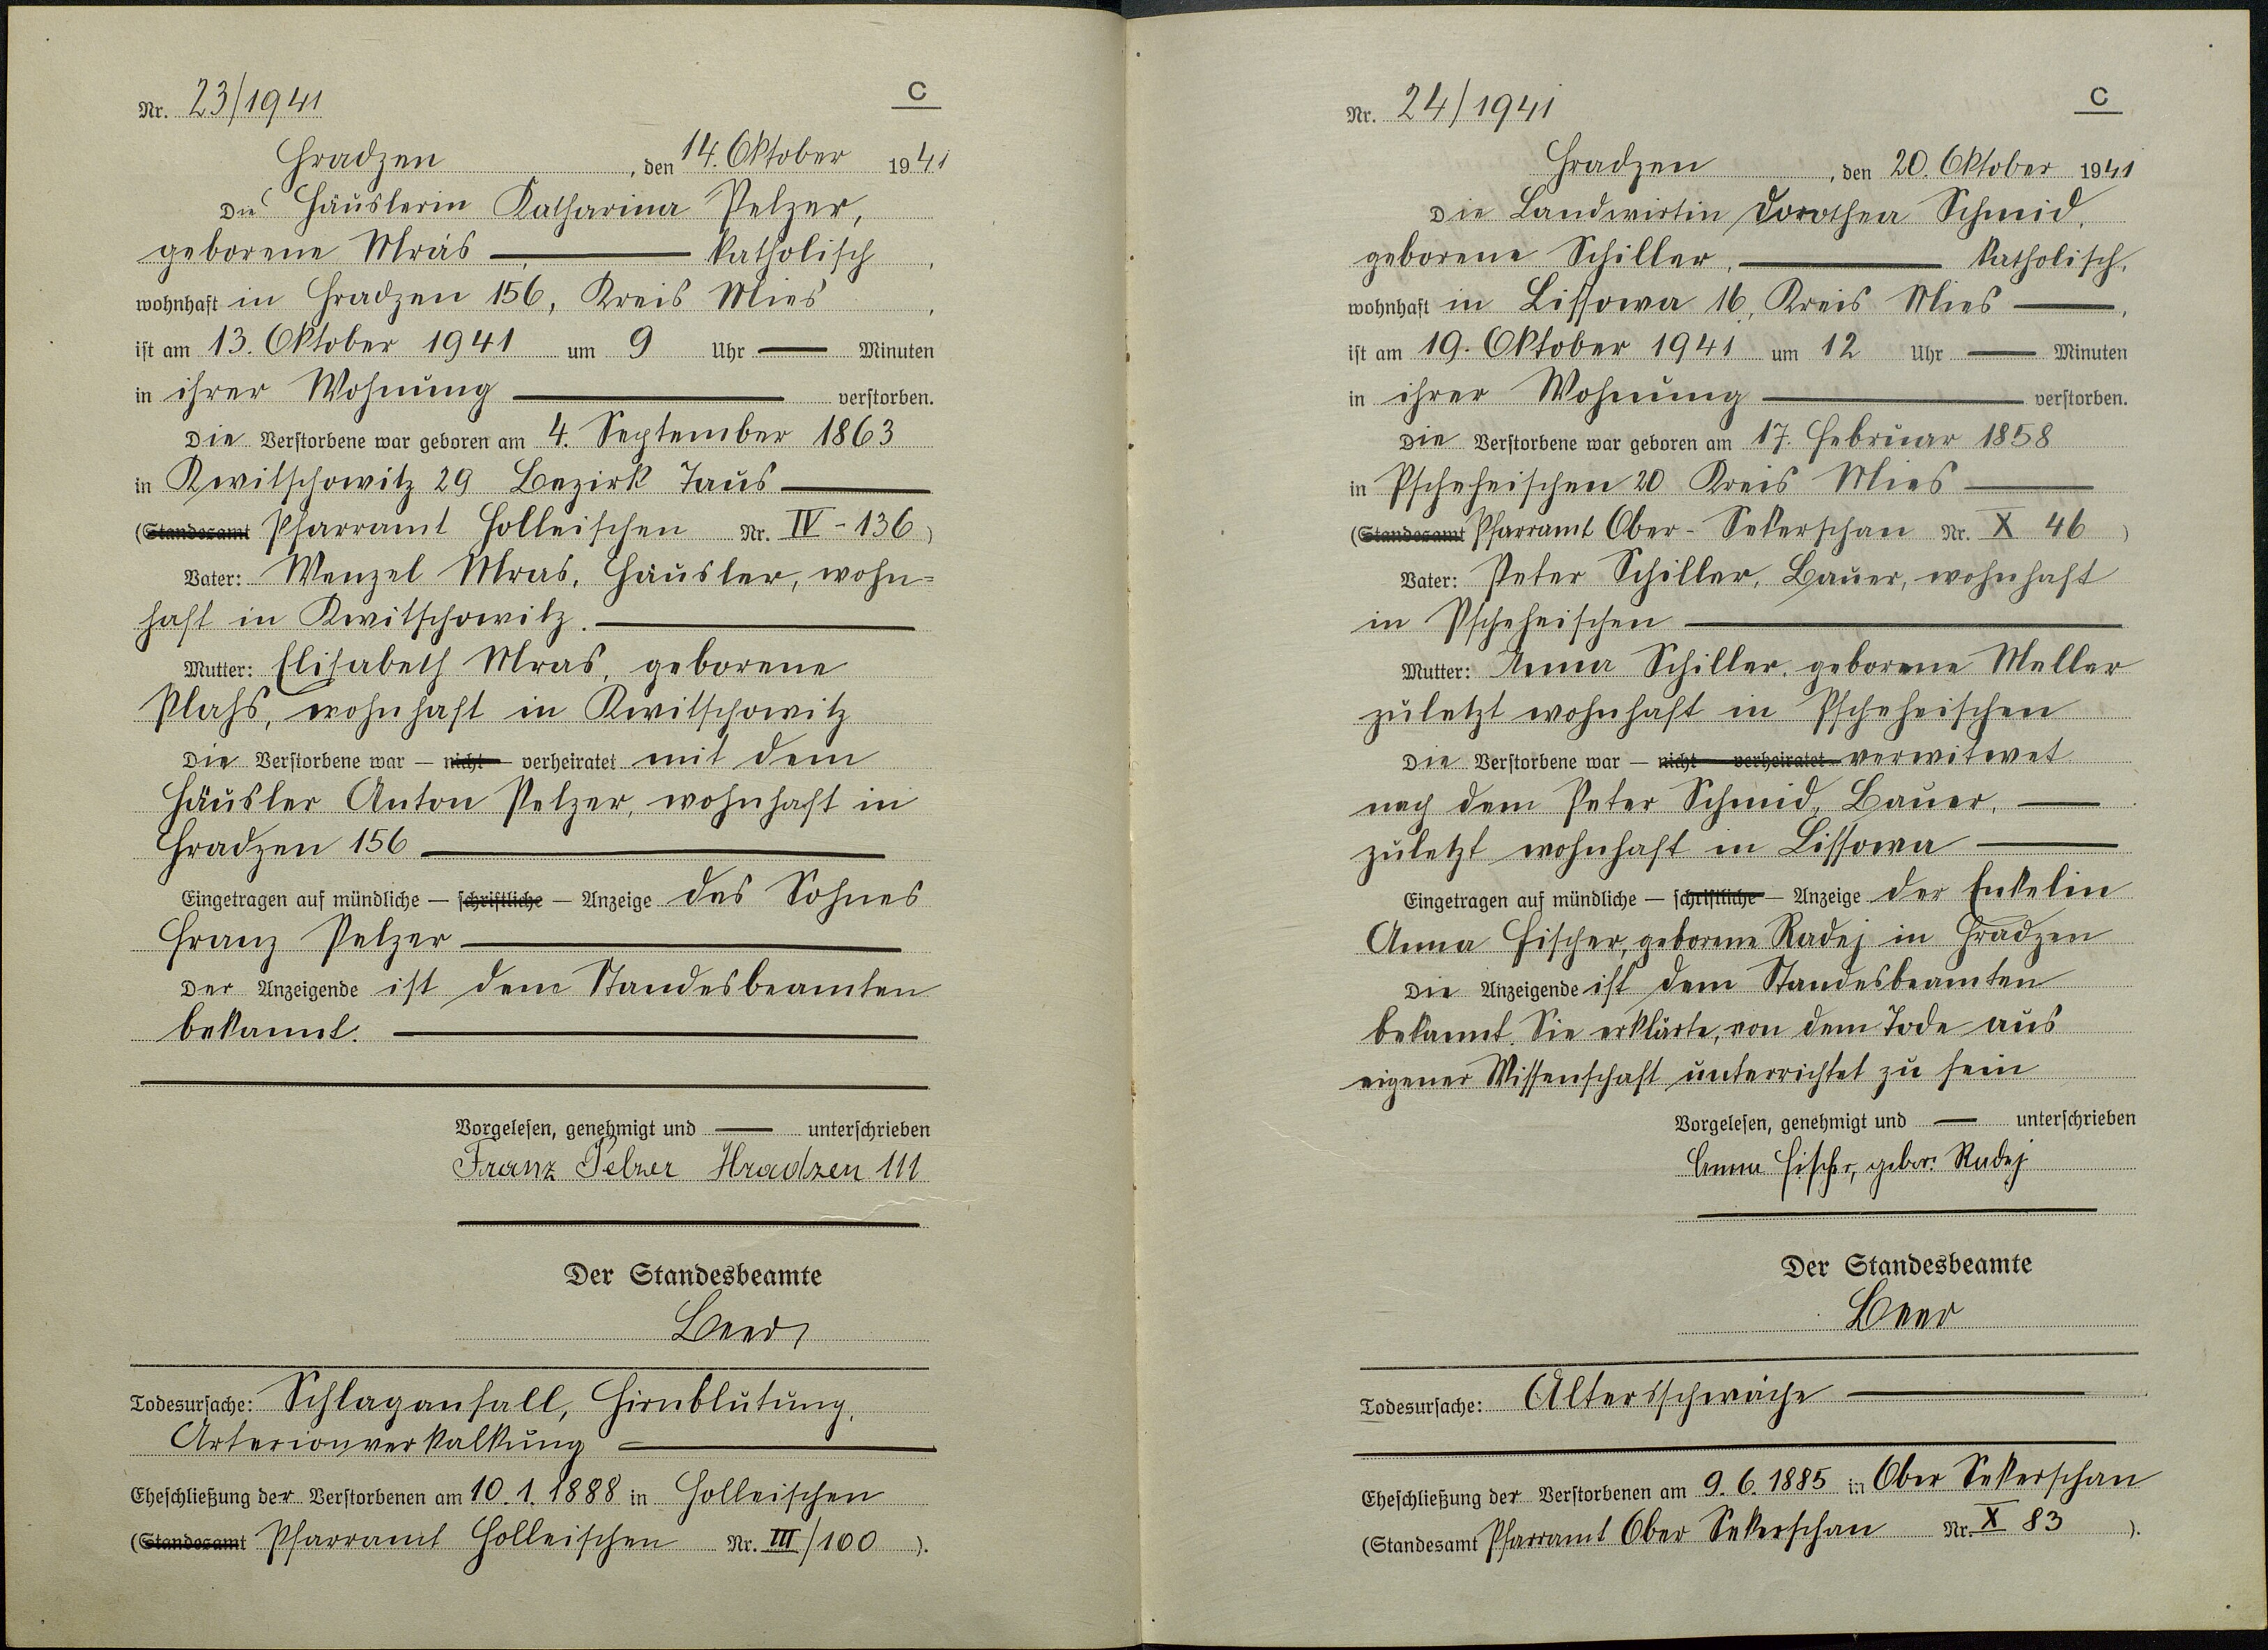 Nr. 23/1941
C
Hradzen, den 14. Oktober 1941
Die Häuslerin Katharina Pelzer,
geborene Mràs — katholisch,
wohnhaft in Hradzen 156, Kreis Mies,
ist am 13. Oktober 1941 um 9 Uhr — Minuten
in ihrer Wohnung — verstorben.
Die Verstorbene war geboren am 4. September 1863
in Kwitschowitz 29 Bezirk Taus —
(Standesamt Pfarramt Holleischen Nr. IV - 136)
Vater: Wenzel Mras, Häusler, wohn=
haft in Kwitschowitz. —
Mutter: Elisabeth Mras, geborene
Plahs, wohnhaft in Kwitschowitz
Die Verstorbene war — nicht — verheiratet mit dem
Häusler Anton Pelzer, wohnhaft in
Hradzen 156 —
Eingetragen auf mündliche — schriftliche — Anzeige des Sohnes
Franz Pelzer —
Der Anzeigende ist dem Standesbeamten
bekannt. —
Vorgelesen, genehmigt und — unterschrieben
Franz Pelzer Hradzen 111
Der Standesbeamte
Beer
Todesursache: Schlaganfall, Hirnblutung,
Arterionverkalkung —
Eheschließung der Verstorbenen am 10. 1. 1888 in Holleischen
(Standesamt Pfarramt Holleischen Nr. III/100).
Nr. 24/1941
C
Hradzen, den 20. Oktober 1941
Die Landwirtin Dorothea Schmid,
geborene Schiller, — katholisch,
wohnhaft in Lissowa 16, Kreis Mies —,
ist am 19. Oktober 1941 um 12 Uhr — Minuten
in ihrer Wohnung — verstorben.
Die Verstorbene war geboren am 17. Februar 1858
in Pscheheischen 20 Kreis Mies —
(Standesamt Pfarramt Ober-Sekerschan Nr. X 46)
Vater: Peter Schiller, Bauer, wohnhaft
in Pscheheischen —
Mutter: Anna Schiller, geborene Meller
zuletzt wohnhaft in Pscheheischen
Die Verstorbene war — nicht — verheiratet — verwitwet
nach dem Peter Schmid, Bauer, —
zuletzt wohnhaft in Lissowa —
Eingetragen auf mündliche — schriftliche — Anzeige der Enkelin
Anna Fischer, geborene Radej in Hradzen
Die Anzeigende ist dem Standesbeamten
bekannt. Sie erklärte, von dem Tode aus
eigener Wissenschaft unterrichtet zu sein
Vorgelesen, genehmigt und — unterschrieben
Anna Fischer, gebor. Radej
Der Standesbeamte
Beer
Todesursache: Altersschwäche —
Eheschließung der Verstorbenen am 9. 6. 1885 in Ober Sekerschan
(Standesamt Pfarramt Ober Sekerschan Nr. X 83).